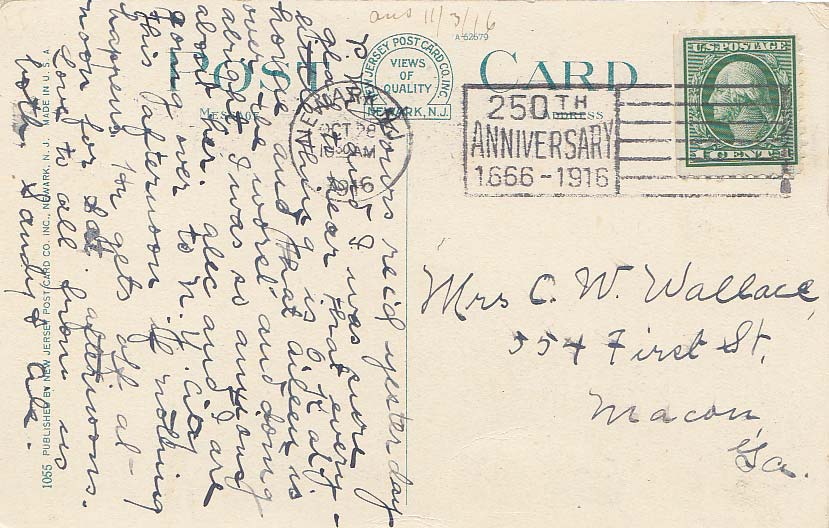 ans 11/3/16
A-62679
POST CARD
NEW JERSEY POST CARD CO. INC.
VIEWS
OF
QUALITY
NEWARK, N.J.
MESSAGE
ADDRESS
U.S. POSTAGE
1 CENT 1
NEWARK
OCT 28
AM
1916
250TH
ANNIVERSARY
1666-1916
Mrs C. W. Wallace,
554 First St,
Macon,
Ga.
Yours rec'd yesterday
and I was sure
glad to hear that every-
thing is O.K. at
home and that is
over the worst and doing
alright. I was so anxious
about her. Alec and I are
going over to N.Y. City
this afternoon if nothing
happens, He gets off at
noon for Sat. afternoons.
Love to all from us
both,
1055 PUBLISHED BY NEW JERSEY POST CARD CO. INC., NEWARK, N. J. MADE IN U. S. A.